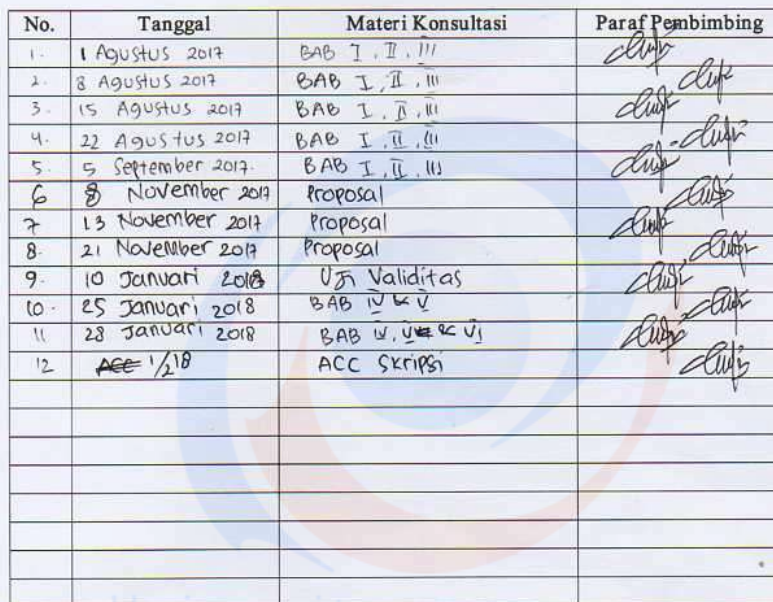 No. Tanggal Materi Konsultasi Paraf Pembimbing
1. 1 Agustus 2017 BAB I, II, III
2. 8 Agustus 2017 BAB I, II, III
3. 15 Agustus 2017 BAB I, II, III
4. 22 Agustus 2017 BAB I, II, III
5. 5 September 2017. BAB I, II, III
6 8 November 2017 Proposal
7 13 November 2017 Proposal
8. 21 November 2017 Proposal
9. 10 Januari 2018 Uji Validitas
10. 25 Januari 2018 BAB IV & V
11 28 Januari 2018 BAB IV, V & VI
12 ACC 1/2 18 ACC Skripsi